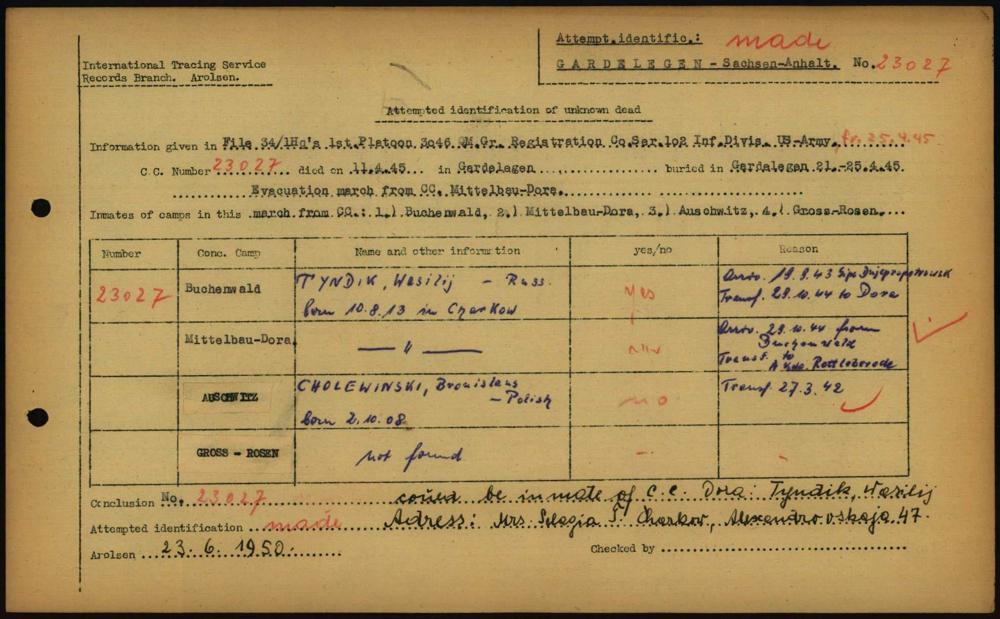 Attempt.identific.: made
International Tracing Service
Records Branch. Arolsen.
GARDELEGEN - Sachsen-Anhalt. No. 23027
Attempted identification of unknown dead
Information given in File 34/1Hq's 1st.Platoon 3046 QM.Gr. Registration Co.Sar.102 Inf.Divis. US-Army. fr. 25.4.45
C.C. Number 23027 died on 11.4.45 in Gardelegen buried in Gardelegen 21.-25.4.45.
Evacuation march from CC. Mittelbau-Dora.
Inmates of camps in this march from CC.: 1.) Buchenwald, 2.) Mittelbau-Dora, 3.) Auschwitz, 4.) Gross-Rosen.
Number Conc. Camp Name and other information yes/no Reason
23027 Buchenwald TYNDIK, Wasilij - Russ. yes Arriv. 19.9.43 Sipo Dnjepropetrowsk
born 10.8.13 in Charkow Transf. 29.10.44 to Dora
Mittelbau-Dora. — " — Arriv. 29.10.44 from
Buchenwald
Transf. to
A Kdo. Rottleberode
AUSCHWITZ CHOLEWINSKI, Bronislaus no Transf. 27.3.42
- Polish
born 2.10.08
GROSS - ROSEN not found - -
Conclusion No. 23027 could be inmate of C.C. Dora: Tyndik, Wasilij
Attempted identification made Adress: Mrs. Pelagia T. Charkov, Alexandrovskaja 47
Arolsen 23.6.1950. Checked by